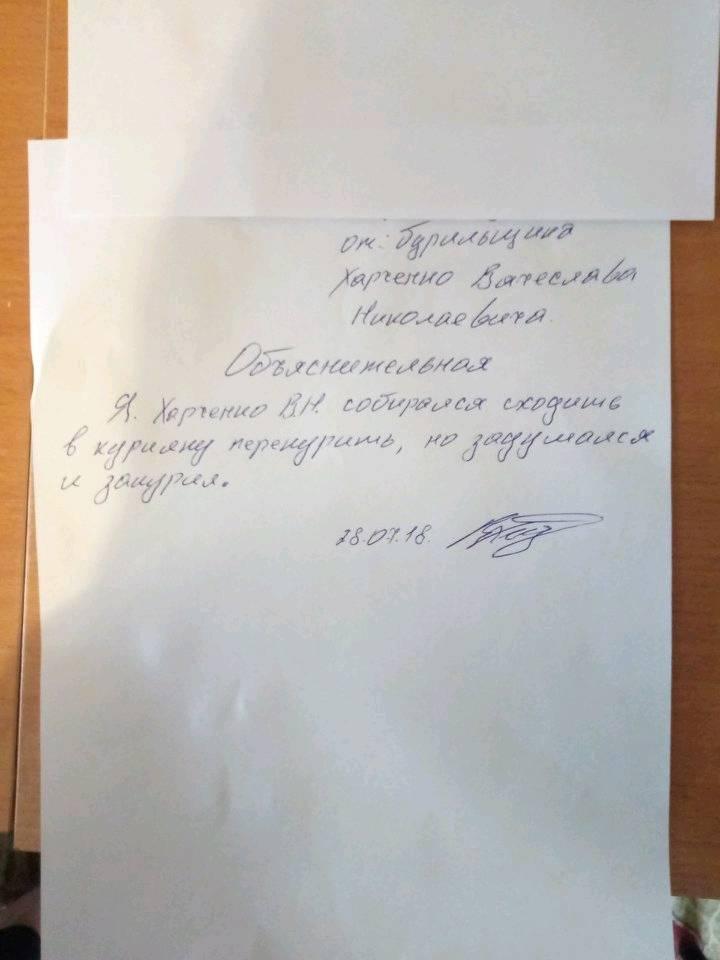 от: бурильщика
Харченко Вячеслава
Николаевича.
Объяснительная
Я. Харченко В.Н. собирался сходить
в курилку перекурить, но задумался
и закурил.
28.07.18.